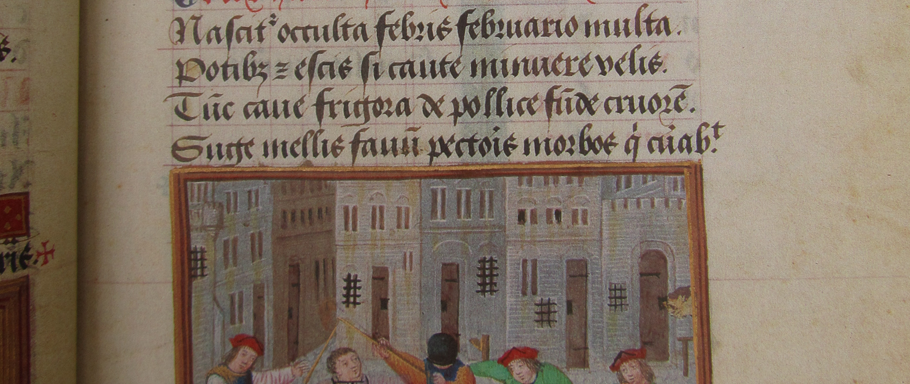 Nascit᷑ occulta febris februario multa.
Potibꝫ ⁊ escis si caute minuere velis.
Tūc caue frigora de pollice fūde cruorē.
Suge mellis fauū pectoīs morbos q̇ cūabᷓt.